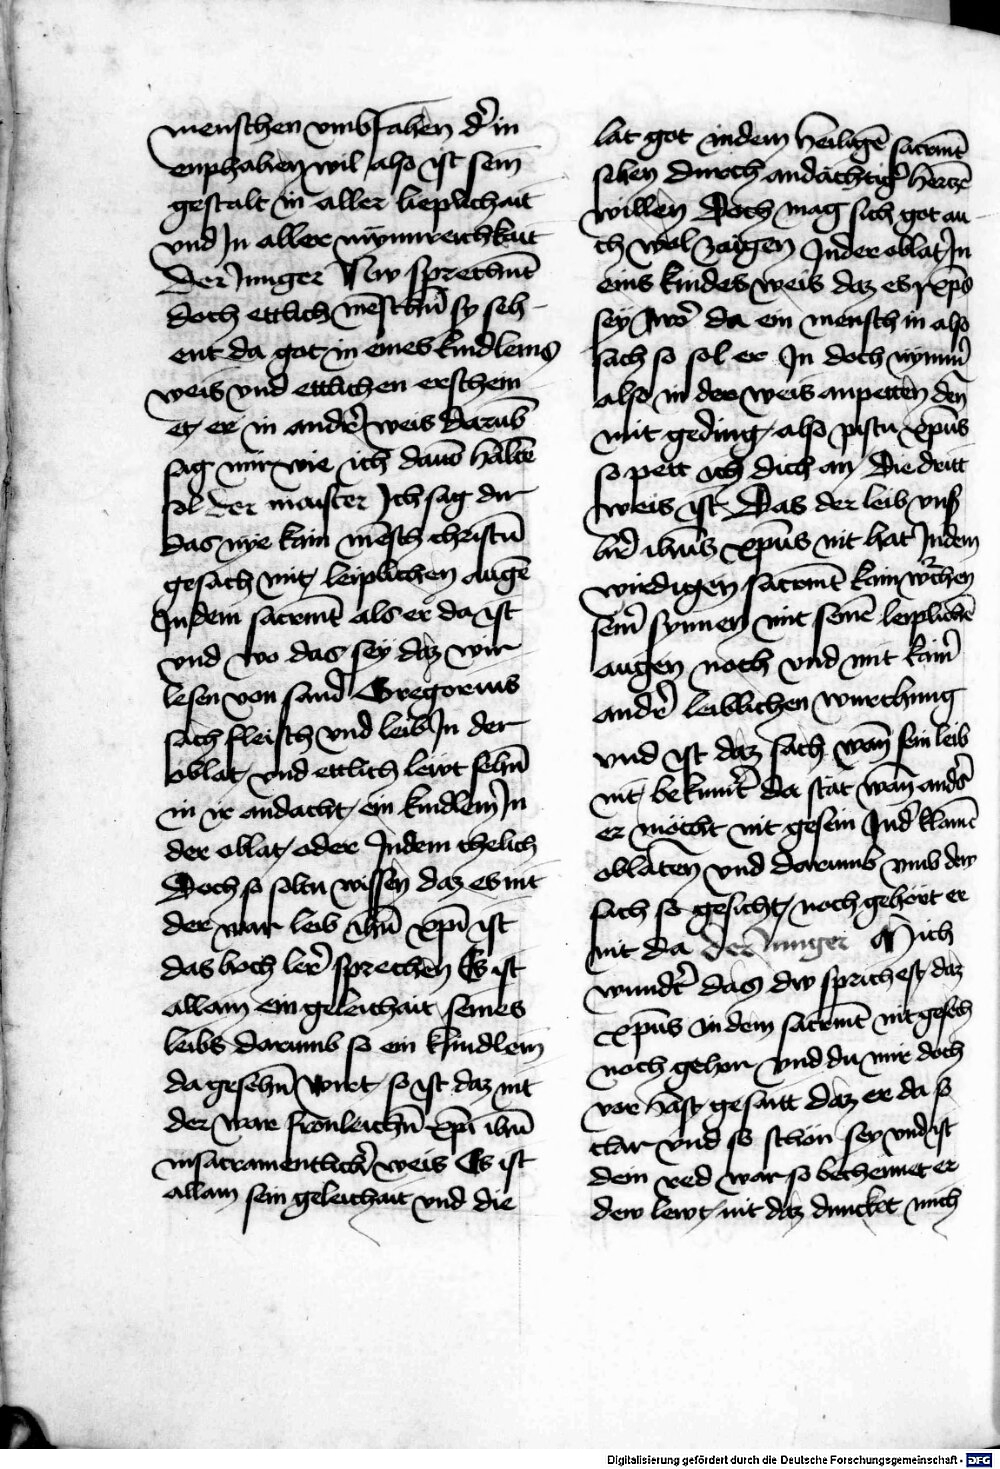 menschen vmbfahen d̉ in
enphahen wil also ist sein
gestalt in aller lieplichait
vnd Jn aller mynnreichkait
Der Junger Nw sprechnt
doch ettlich mēschn̄ sy seh
ent da got in eines kindleins
weis vnd ettlichen erschein
et er in andr̉ weis darūb
sag mir wie ich dauō haltē
sol der maister Jch sag dir
das nye kain mēsch christū
gesach mit leiplichen augē
Jn dem sacrmt̄ als er da ist
vnd wo das sey daz wir
lesen von sand Gregorius
sach fleisch vnd leib Jn der
oblat vnd ettlich lewt sehn̄
in ir andacht ein kindlein Jn
der oblat oder Jn dem chelich
Doch so soltu wissen daz es nit
der war leib ihū xp̄i ist
das hoch ler̉ sprechen Es ist
allain ein geleichait seines
leibs darumb so ein kindlein
da gesehn̄ wirt so ist daz nit
der war fronleichn̄ xp̄i ihū
in sacramentlich̉ weis Es ist
allain sein geleichait vnd die
lat got in dem heiligē sacrmt̄
sehen durch andachtig̉ hertzē
willen Doch mag sich got au
ch wol zaigen Jn der oblat Jn
eins kindes weis daz es xp̄s
sey wo da ein mensch in also
sach so sol er Jn doch nymm̉
also in der weis anpetten dēn
mit geding also pistu xp̄us
so pett ich dich an Die dritt
weis ist Das der leib vnß
hr̉ ihūs xp̄us nit hat Jn dem
wirdigen sacrmt̄ kain wc̉hen
sein̉ synnen mit seinē leiplichē
augen noch vnd mit kain̉
andr̉ leiblichen wurchung
vnd ist daz sach wan̄ sein leib
nit bekumt̉ da stat wan̄ ands̉
er mocht nit gesein Jn d̉ klainē
oblaten vnd darumb vmb dew
sich so gesicht noch gehört er
nit da der Junger Mich
wundt̉ das dw sprichest daz
xp̄us in dem sacrmt̄ nit gesech
noch gehor vnd du mir doch
vor hast gesaitt daz er da so
clar vnd so schön sey vnd ist
dein red war so bechennet er
dew lewt nit daz duncket mich
Digitalisierung gefördert durch die Deutsche Forschungsgemeinschaft - DFG